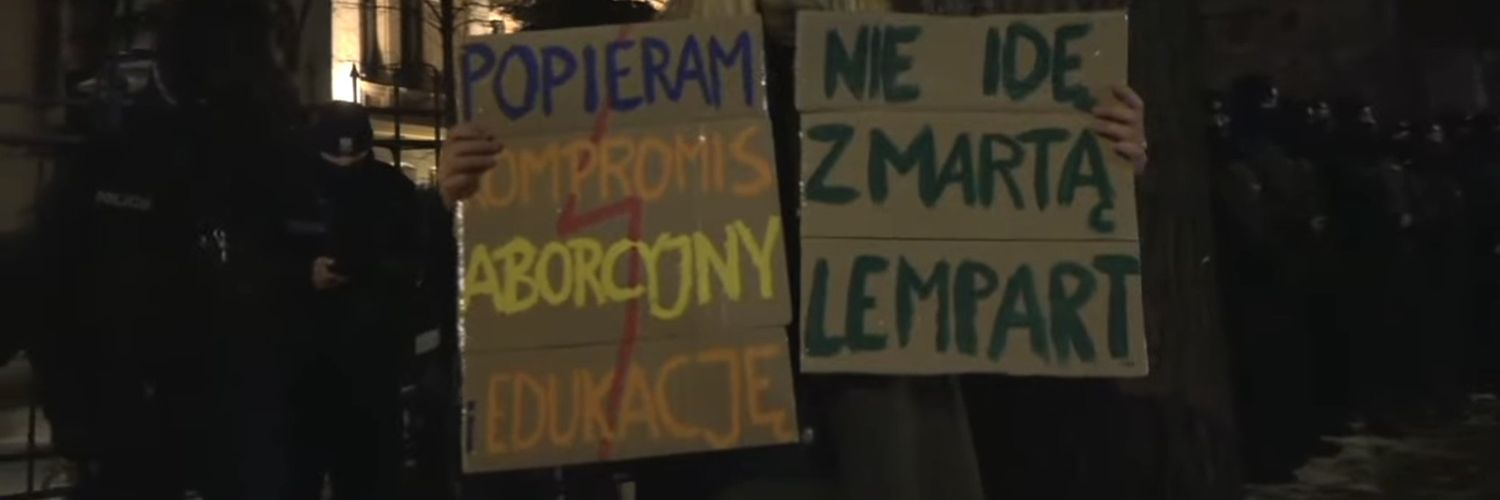 POPIERAM
KOMPROMIS
ABORCYJNY
i EDUKACJĘ
NIE IDĘ
Z MARTĄ
LEMPART
POLICJA